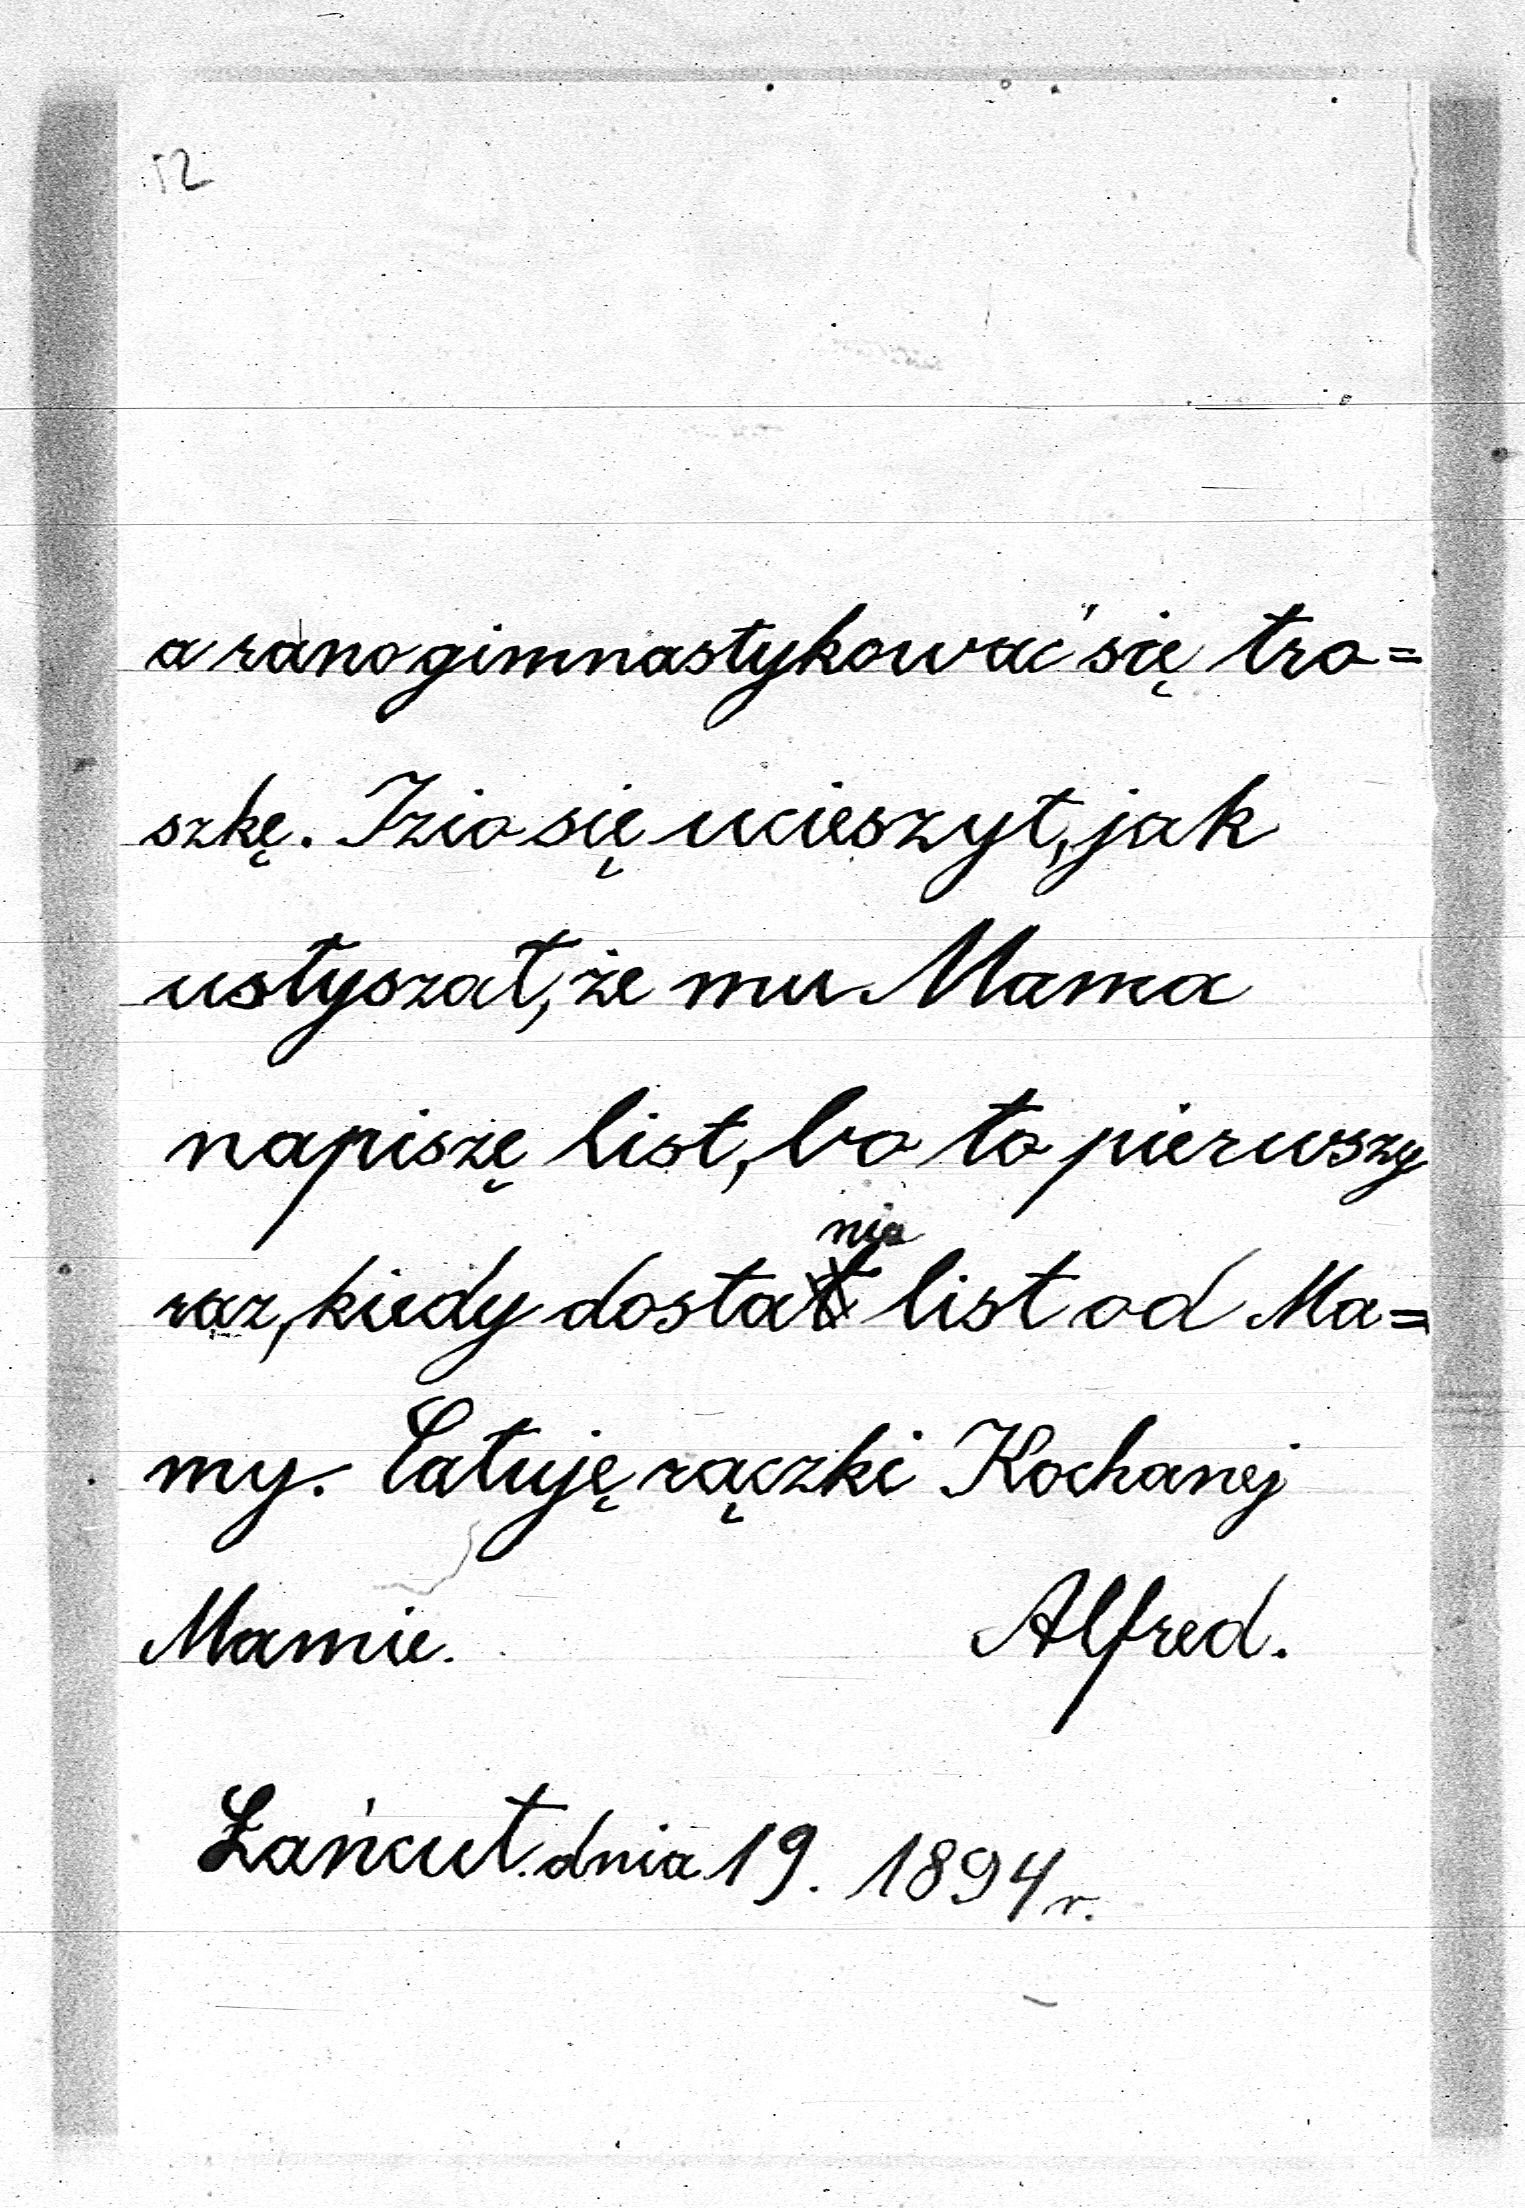 12
a rano gimnastykować się tro=
szkę. Izio się ucieszył, jak
usłyszał, że mu Mama
napiszę list, bo to pierwszy
raz, kiedy dostał nie list od Ma=
my. Całuję rączki Kochanej
Mamie. Alfred.
Łańcut. dnia 19. 1894 r.